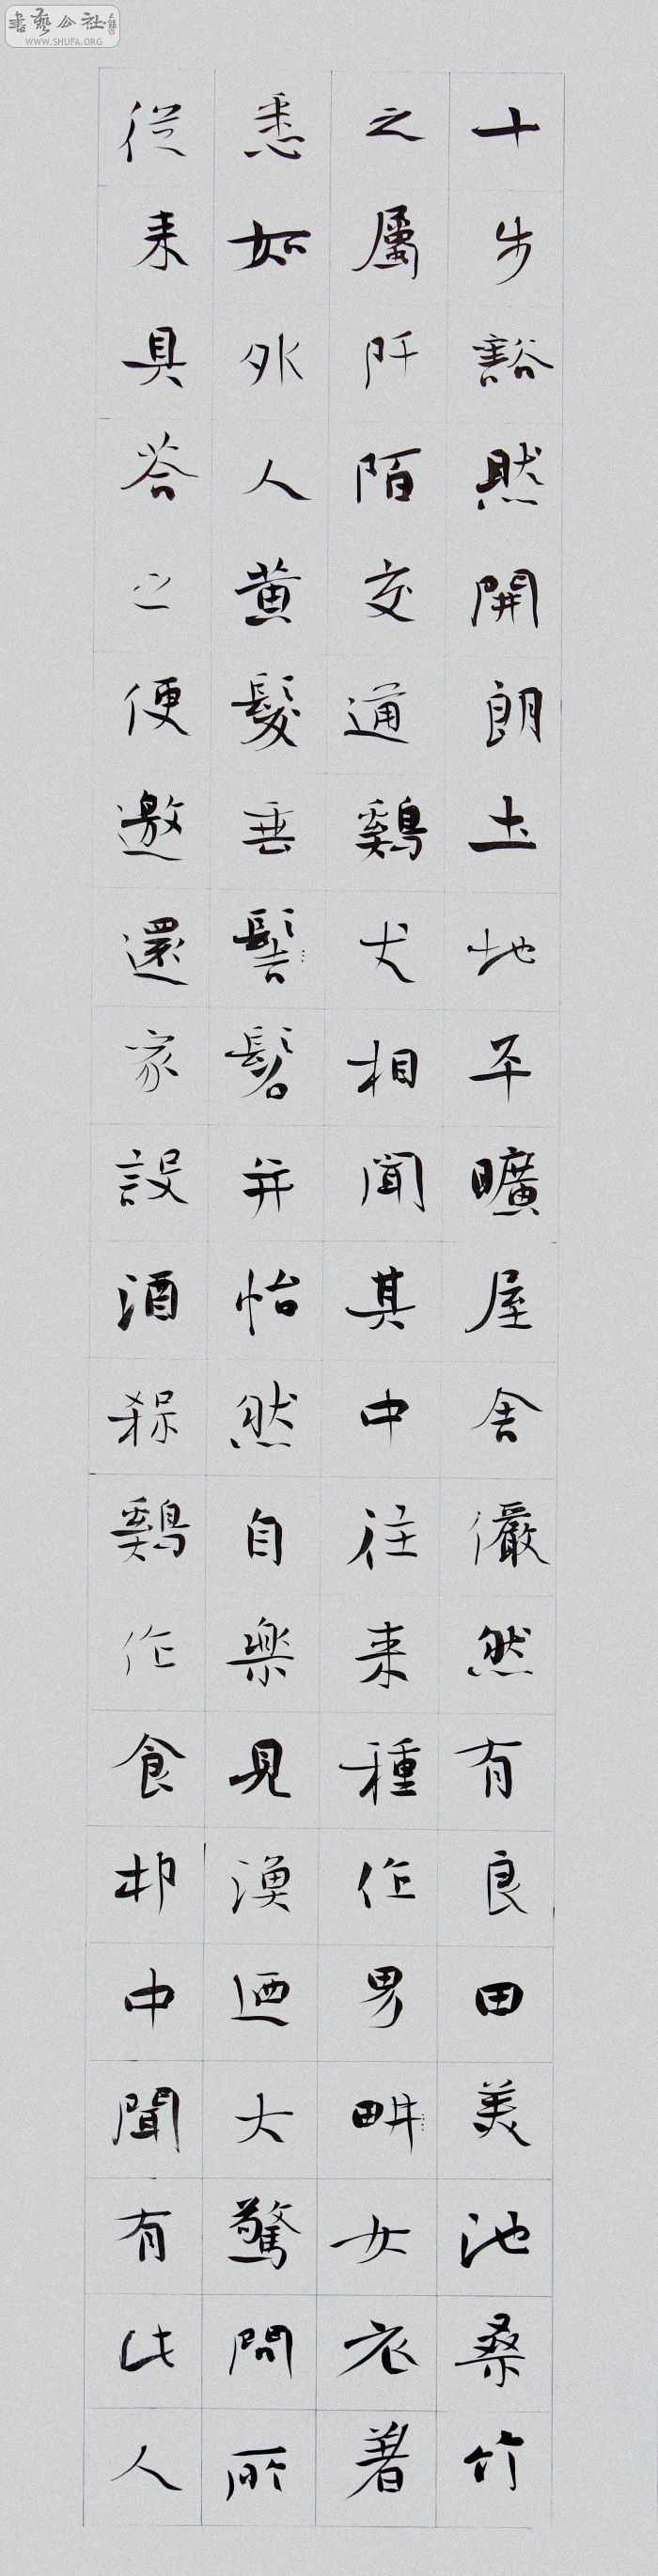 書藝公社
WWW.SHUFA.ORG
十步豁然開朗土地平曠屋舍儼然有良田美池桑竹
之屬阡陌交通鷄犬相聞其中往来種作男畊女衣著
悉如外人黄髮垂髻髫并怡然自樂見漁迺大驚問所
從来具荅之便邀還家設酒殺鷄作食邨中聞有此人